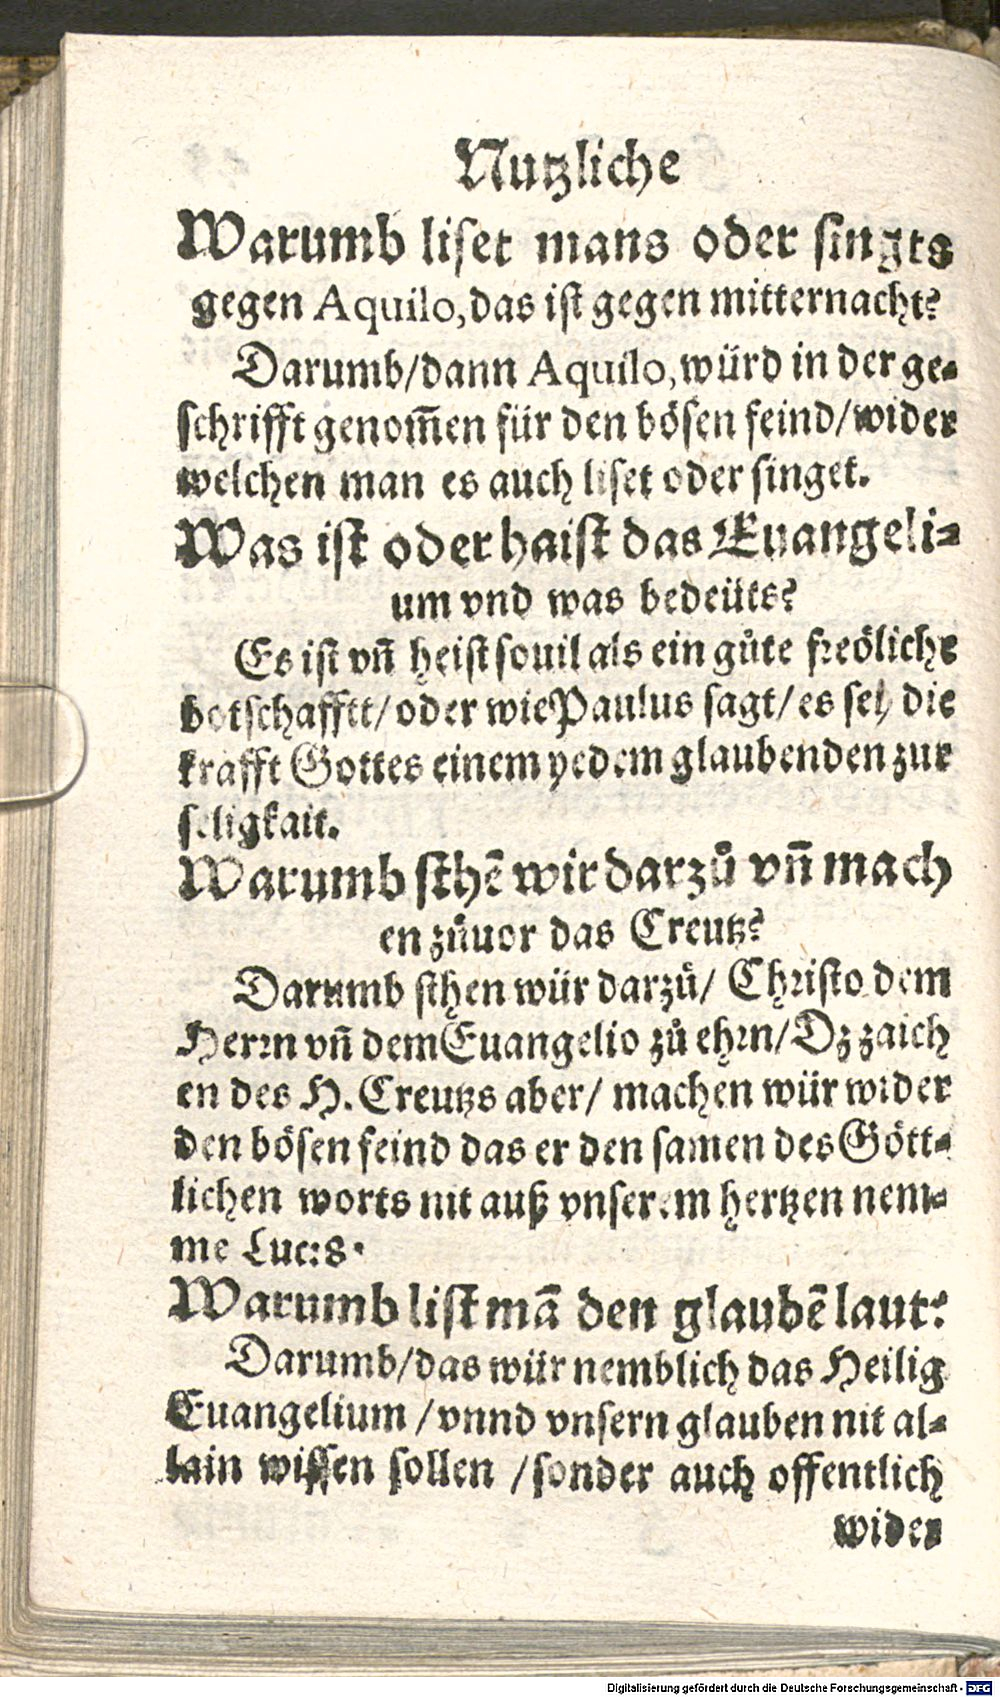 Nutzliche
Warumb liset mans oder singts
gegen Aquilo, das ist gegen mitternacht?
Darumb/dann Aquilo, würd in der ge-
schrifft genom̅en für den bösen feind/wider
welchen man es auch liset oder singet.
Was ist oder haist das Euangeli-
um vnd was bedeüts?
Es ist vn̅ heist souil als ein gůte freöliche
botschafftt/oder wie Paulus sagt/es sey die
krafft Gottes einem yedem glaubenden zur
seligkait.
Warumb sthē wir darzů vn̅ mach
en zůuor das Creutz?
Darumb sthen wür darzů/ Christo dem
Herrn vn̅ dem Euangelio zů ehrn/Dz zaich
en des H. Creutzs aber/ machen wür wider
den bösen feind das er den samen des Gött-
lichen worts nit auß vnserem hertzen nem-
me Luc:8.
Warumb list mā den glaubē laut?
Darumb/das wür nemblich das Heilig
Euangelium /vnnd vnsern glauben nit al-
lain wissen sollen /sonder auch offentlich
wider
Digitalisierung gefördert durch die Deutsche Forschungsgemeinschaft - DFG